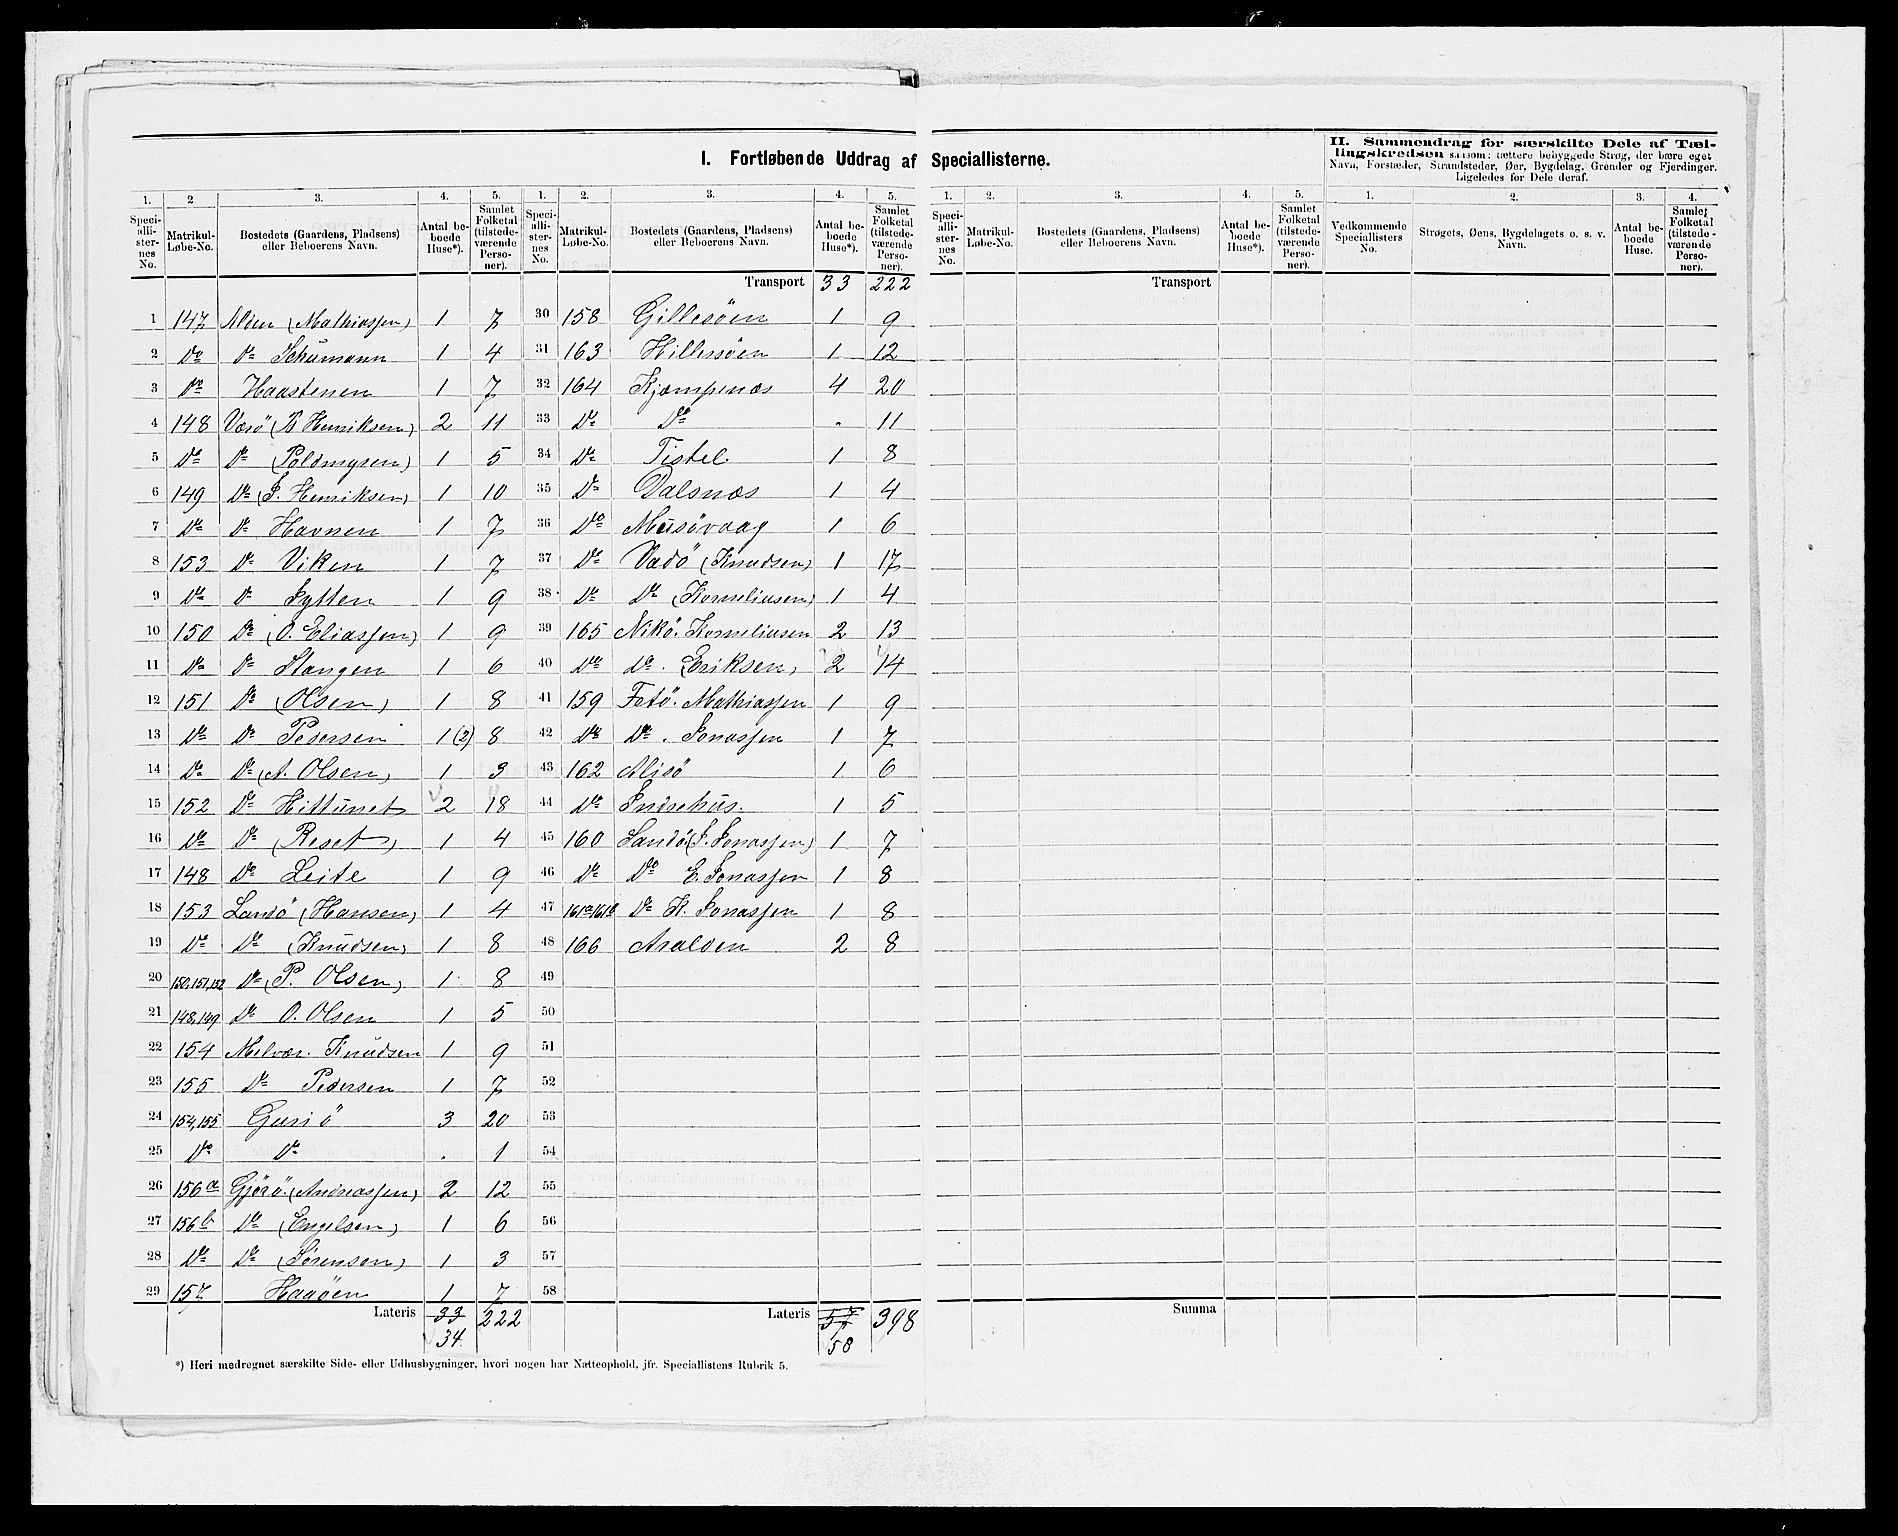 I. Fortløbende Uddrag af Speciallisterne.
II. Sammendrag for særskilte Dele af Tællingskredsen saasom: tættere bebyggede Strøg, der bære eget Navn, Forstæder, Strandsteder, Øer, Bygdelag, Grender og Fjerdinger. Ligeledes for Dele deraf.
1. 2 3. 4. 5. 1. 2. 3. 4. 5. 1. 2. 3. 4. 5. 1. 2. 3. 4.
Speciallisternes No. Matrikul-Løbe-No. Bostedets (Gaardens, Pladsens) eller Beboerens Navn. Antal beboede Huse*). Samlet Folketal (tilstedeværende Personer).
Speciallisternes No. Matrikul-Løbe-No. Bostedets (Gaardens, Pladsens) eller Beboerens Navn. Antal beboede Huse*). Samlet Folketal (tilstedeværende Personer).
Speciallisternes No. Matrikul-Løbe-No. Bostedets (Gaardens, Pladsens) eller Beboerens Navn. Antal beboede Huse*). Samlet Folketal (tilstedeværende Personer).
Vedkommende Speciallisters No. Strøgets, Øens, Bygdelagets o. s. v. Navn. Antal beboede Huse. Samlet Folketal (tilstedeværende Personer).
1 147 Alden (Mathiassen) 1 7
2 Do Do Schumann 1 4
3 Do Haastenen 1 7
4 148 Værö (B Henriksen) 2 11
5 Do Do (Poldmysen) 1 5
6 149 Do (J. Henriksen) 1 10
7 Do Do Havnen 1 7
8 153 Do Viken 1 7
9 Do Do Sytten 1 9
10 150 Do (O. Eliassen) 1 9
11 Do Do Stangen 1 6
12 151 Do (Olsen) 1 8
13 Do Do Pedersen 1 (2) 8
14 Do Do (A. Olsen) 1 3
15 152 Do Hittunet 2 18
16 Do Do (Reset) 1 4
17 148 Do Leite 1 9
18 153 Landö (Hansen) 1 4
19 Do Do (Knudsen) 1 8
20 150,151,152 Do (P. Olsen) 1 8
21 148,149 Do O. Olsen 1 5
22 154 Melvær. Knudsen 1 9
23 155 Do Pedersen 1 7
24 154,155 Gursö 3 20
25 Do Do . 1
26 156a Gjörö (Andreassen) 2 12
27 156b Do (Engelsen) 1 6
28 Do Do (Sörensen) 1 3
29 157 Haaöen 1 7
Lateris 33 222
34
Transport 33 222
30 158 Gillesöen 1 9
31 163 Hillersöen 1 12
32 164 Kjæmpenæs 4 20
33 Do Do . 11
34 Do Tistel 1 8
35 Do Dalsnæs 1 4
36 Do Musövaag 1 6
37 Do Vadö (Knudsen) 1 17
38 Do Do (Korneliusen) 1 4
39 165 Nikö. Korneliusen 2 13
40 Do Do. (Eriksen) 2 14
41 159 Fetö. Mathiassen 1 9
42 Do Do. Jonassen 1 7
43 162 Alisö 1 6
44 Do Indrehus. 1 5
45 160 Sandö (J. Jonassen) 1 7
46 Do Do E. Jonassen 1 8
47 161a161b Do K. Jonassen 1 8
48 166 Aralden 2 8
49
50
51
52
53
54
55
56
57
58
Lateris 57 398
58
Transport
Summa
*) Heri medregnet særskilte Side- eller Udhusbygninger, hvori nogen har Natteophold, jfr. Speciallistens Rubrik 5.